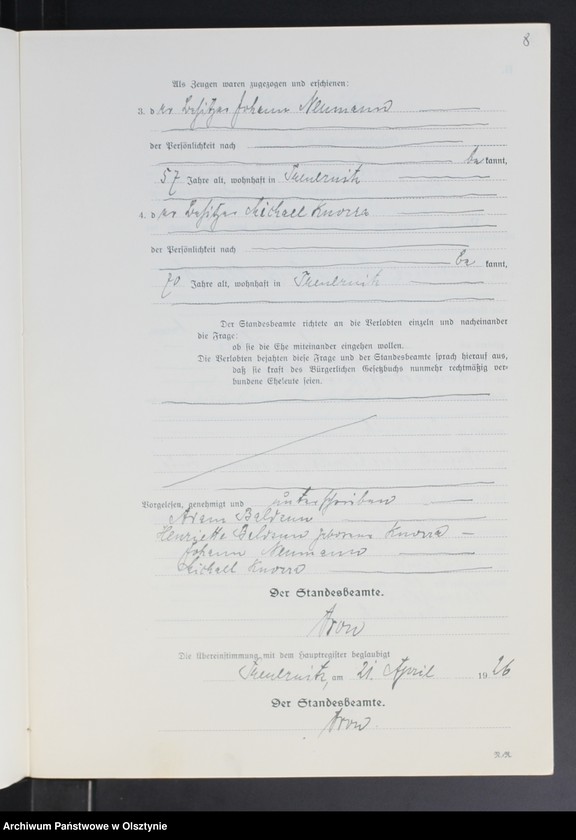 8
Als Zeugen waren zugezogen und erschienen:
3. der Besitzer Johann Neumann
der Persönlichkeit nach
be kannt,
57 Jahre alt, wohnhaft in
4. der Besitzer Michael Knorra
der Persönlichkeit nach
be kannt,
70 Jahre alt, wohnhaft in
Der Standesbeamte richtete an die Verlobten einzeln und nacheinander
die Frage:
ob sie die Ehe miteinander eingehen wollen.
Die Verlobten bejahten diese Frage und der Standesbeamte sprach hierauf aus,
daß sie kraft des Bürgerlichen Gesetzbuchs nunmehr rechtmäßig ver-
bundene Eheleute seien.
Vorgelesen, genehmigt und unterschrieben
Adam
Henriette geborene Knorra
Johann Neumann
Michael Knorra
Der Standesbeamte.
Die Übereinstimmung mit dem Hauptregister beglaubigt
am 21. April 1926
Der Standesbeamte.
Archiwum Państwowe w Olsztynie